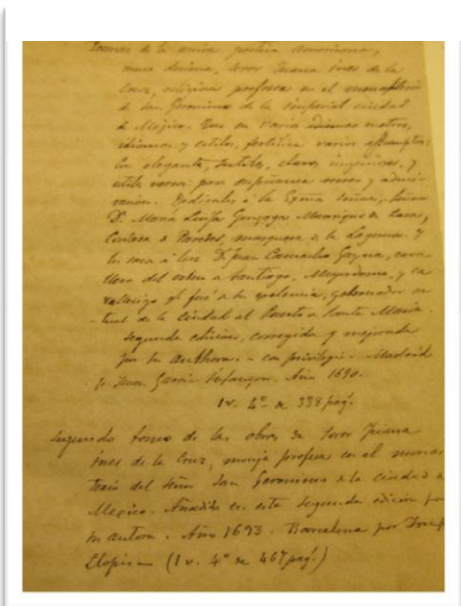 Poemas de la unica poetisa Americana,
musa decima, soror Juana Ines de la
Cruz, religiosa profesa en el monasterio
de San Geronimo de la imperial ciudad
de Mejico. Que en varios metros,
idiomas y estilos, fertiliza varios assumptos:
con elegantes, sutiles, claros, ingeniosos, y
utiles versos: para enseñanza, recreo y admi-
racion. Dedicalos à la Exma Señora, Señora
Dª Maria Luisa Gonzaga Manrique de Lara,
Condesa de Paredes, marquesa de la Laguna. Y
los saca à luz D. Juan Camacho Gayna, cava
llero del orden de Santiago, Mayordomo, y ca
vallerizo qe fué de su excelencia, gobernador ac
-tual de la Ciudad del Puerto de Santa Maria.
Segunda edicion, corregida y mejorada
por su authora. - con privilegio - Madrid
p. Juan Garcia Infanzon. Año 1690.
1 v. 4º de 338 pag.
Segundo tomo de las obras de soror Juana
Ines de la Cruz, monja profesa en el monas
terio del Señor San Geronimo de la ciudad de
Mexico. Añadido en esta segunda edicion por
su autora. Año 1693. Barcelona por Josef
Llopis - (1 v. 4º de 467 pag.)